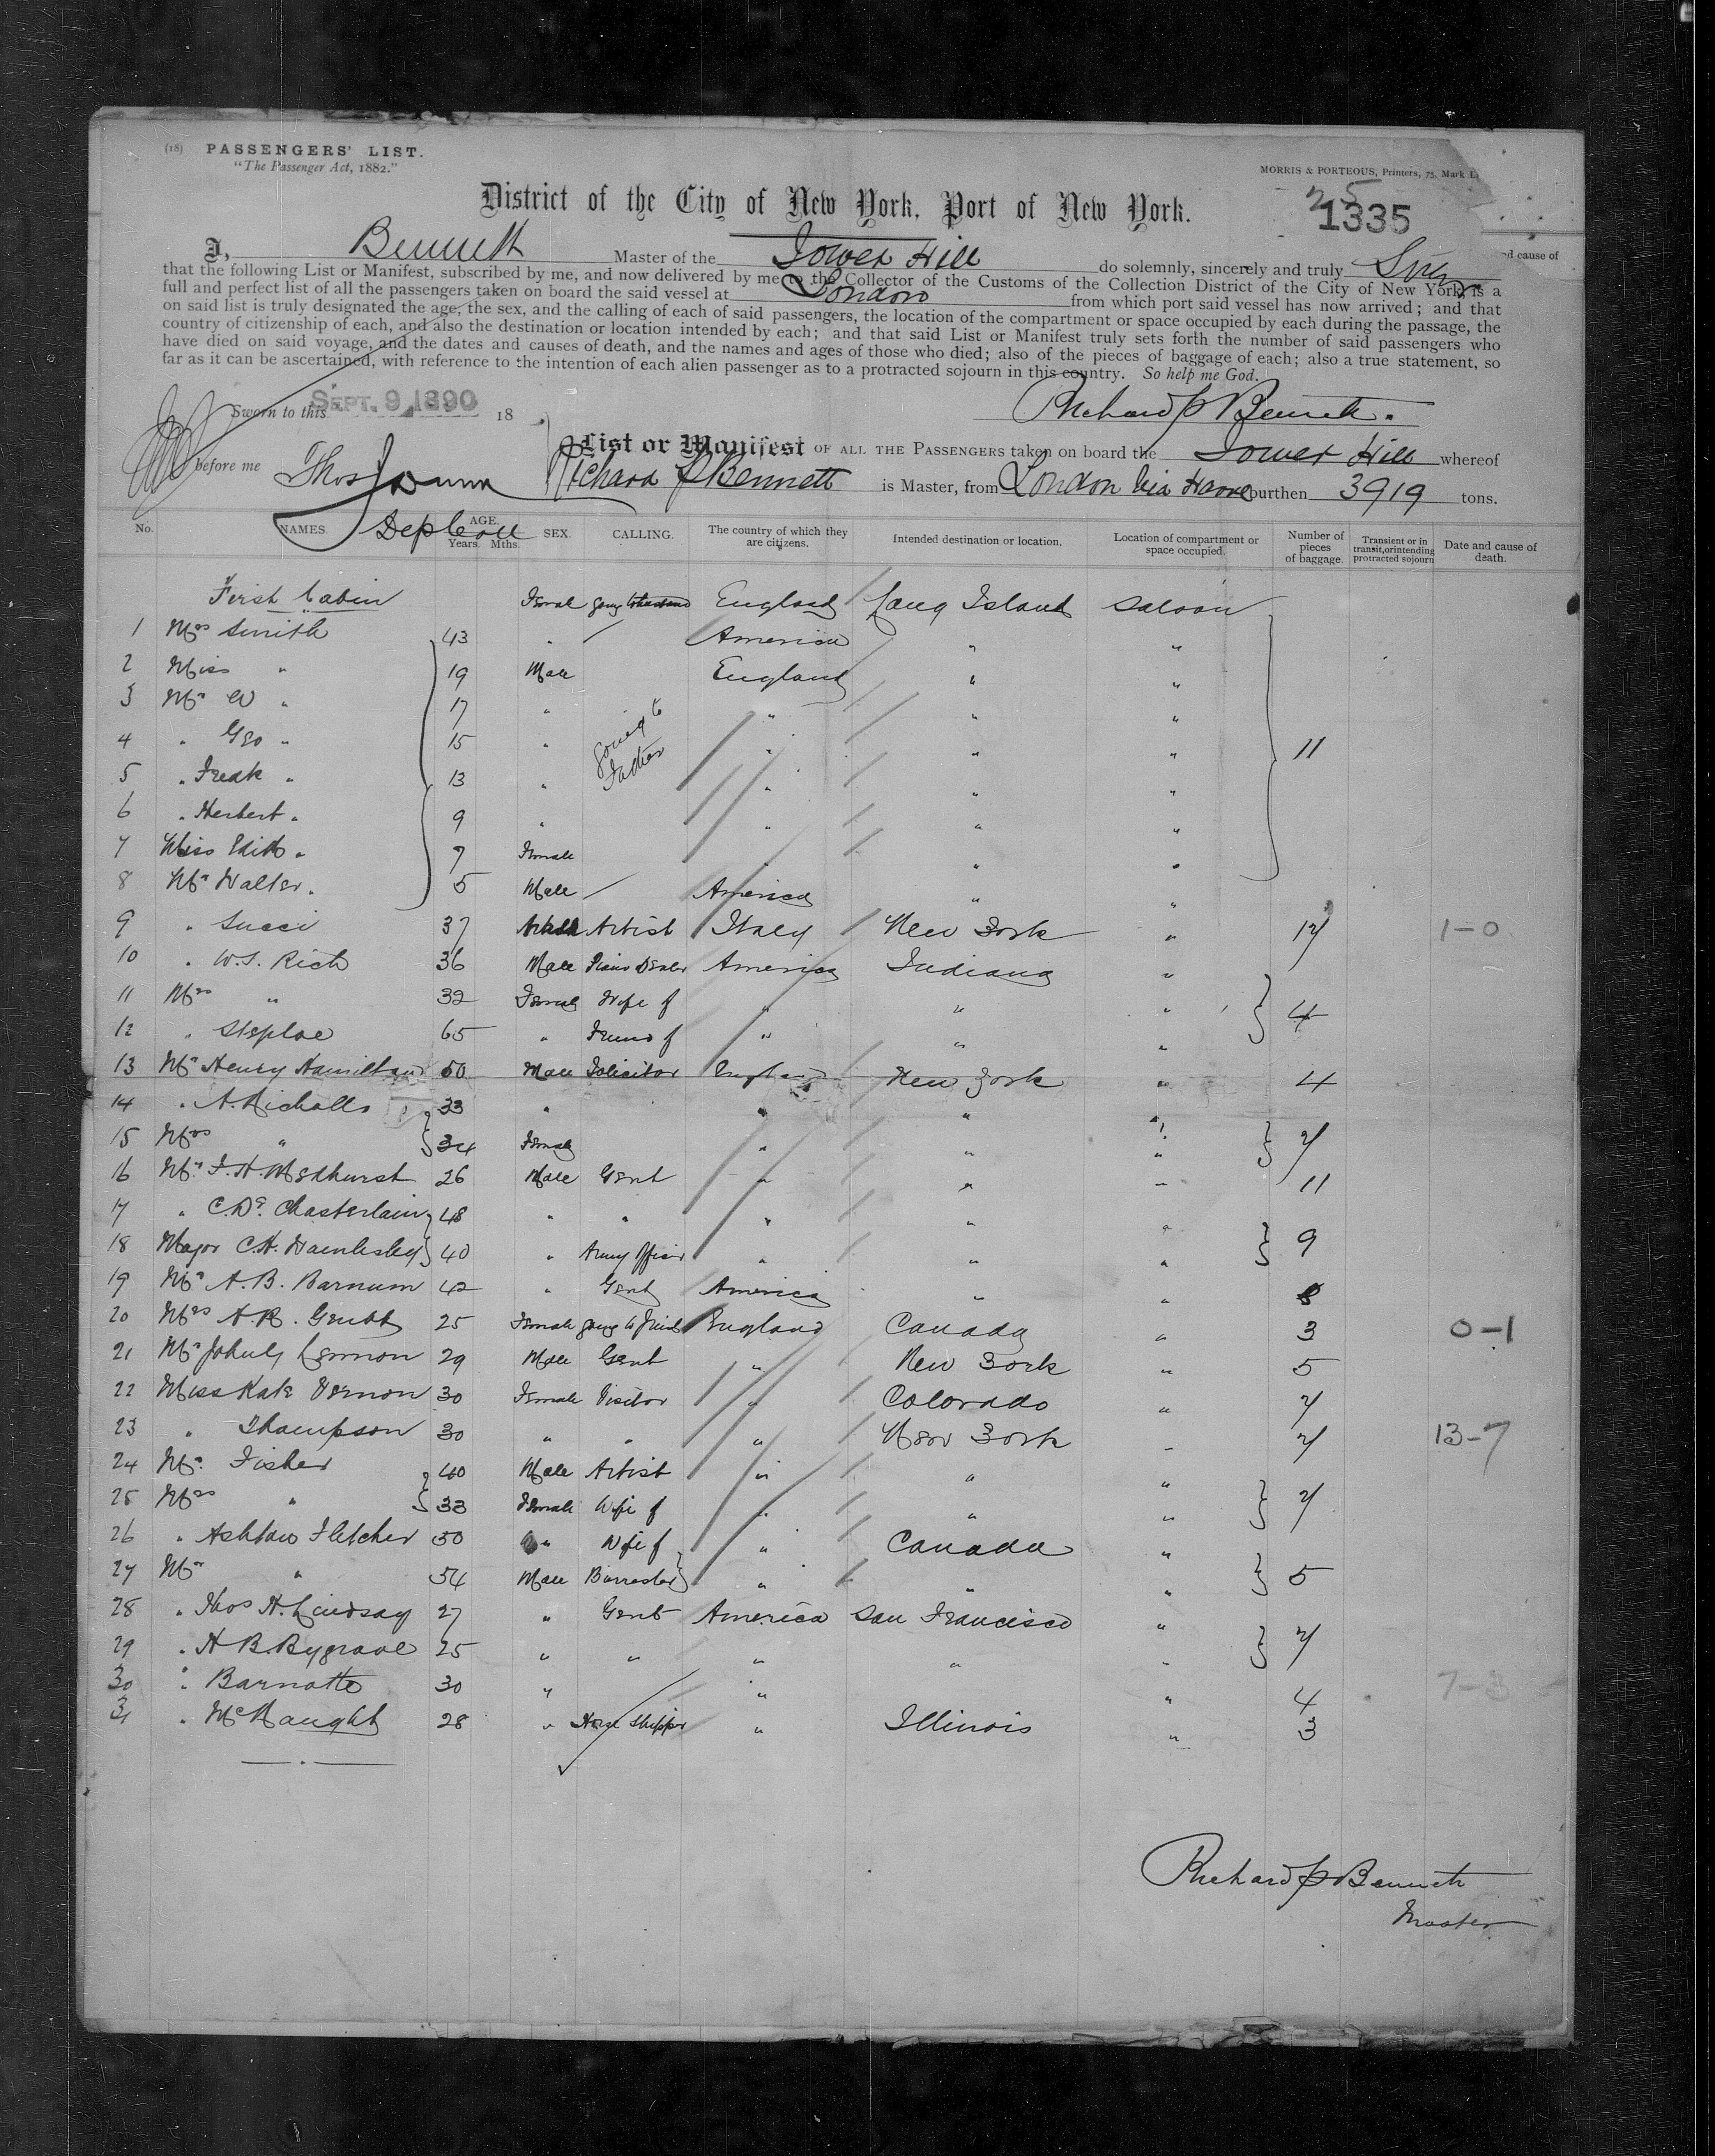 (18) PASSENGERS' LIST.
"The Passenger Act, 1882."
MORRIS & PORTEOUS, Printers, 75, Mark
District of the City of New York, Port of New York.
25
1335
I, Bennett Master of the Tower Hill do solemnly, sincerely and truly
nd cause of
that the following List or Manifest, subscribed by me, and now delivered by me to the Collector of the Customs of the Collection District of the City of New York, is a
full and perfect list of all the passengers taken on board the said vessel at London from which port said vessel has now arrived; and that
on said list is truly designated the age, the sex, and the calling of each of said passengers, the location of the compartment or space occupied by each during the passage, the
country of citizenship of each, and also the destination or location intended by each; and that said List or Manifest truly sets forth the number of said passengers who
have died on said voyage, and the dates and causes of death, and the names and ages of those who died; also of the pieces of baggage of each; also a true statement, so
far as it can be ascertained, with reference to the intention of each alien passenger as to a protracted sojourn in this country. So help me God.
Sworn to this SEPT. 9 1890 18
Richard P Bennett.
before me Thos Dunn
List or Manifest OF ALL THE PASSENGERS taken on board the Tower Hill whereof
Richard P Bennett is Master, from London via Havre burthen 3919 tons.
Dep Coll
No. NAMES. AGE. Years. Mths. SEX. CALLING. The country of which they are citizens. Intended destination or location. Location of compartment or space occupied. Number of pieces of baggage. Transient or in transit, or intending protracted sojourn Date and cause of death.
First Cabin Female going to husband England Long Island Saloon
1 Mrs Smith 43 " America " "
2 Miss " 19 Male England " "
3 Mr W " 17 " " " "
4 " Geo " 15 " going to Father " " " 11
5 " Fredk " 13 " " " "
6 " Herbert " 9 " " " "
7 Miss Edith " 7 Female " " "
8 Mr Walter " 5 Male America " "
9 " Succi 37 Artist Italy New York " 14 1-0
10 " W.S. Rich 36 Male Piano Dealer America Indiana "
11 Mrs " 32 Female Wife of " " " 4
12 " Steploe 65 " Friend of " " "
13 Mr Henry Hamilton 50 Male Solicitor England New York " 4
14 " A. Nicholls 33 " " " "
15 Mrs " 34 Female " " " 4
16 Mr F. H. Medhurst 26 Male Gent " " " 11
17 " C. De Chasterlain 48 " " " " "
18 Major C.H. 40 " Army Officer " " " 9
19 Mr A. B. Barnum 42 " Gent America " "
20 Mrs A. R. Grubb 25 Female going to friends England Canada " 3 0-1
21 Mr John Lennon 29 Male Gent " New York " 5
22 Miss Kate Vernon 30 Female Visitor " Colorado " 4
23 " Thompson 30 " " " New York " 4 13-7
24 Mr. Fisher 40 Male Artist " " "
25 Mrs " 33 Female Wife of " " " 4
26 " Ashton Fletcher 50 " Wife of " Canada "
27 Mr " 54 Male Barrester " " " 5
28 " Thos H. Lindsay 27 " Gent America San Francisco "
29 " H B. Bygrave 25 " " " " " 4
30 " Barnatto 30 " " " 4 7-3
31 " McNaught 28 " Horse Shipper " Illinois " 3
Richard P Bennett
Master